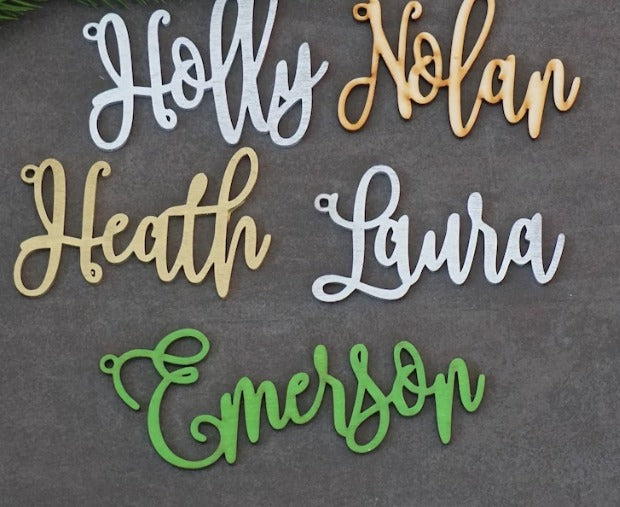 Holly Nolan
Heath Laura
Emerson